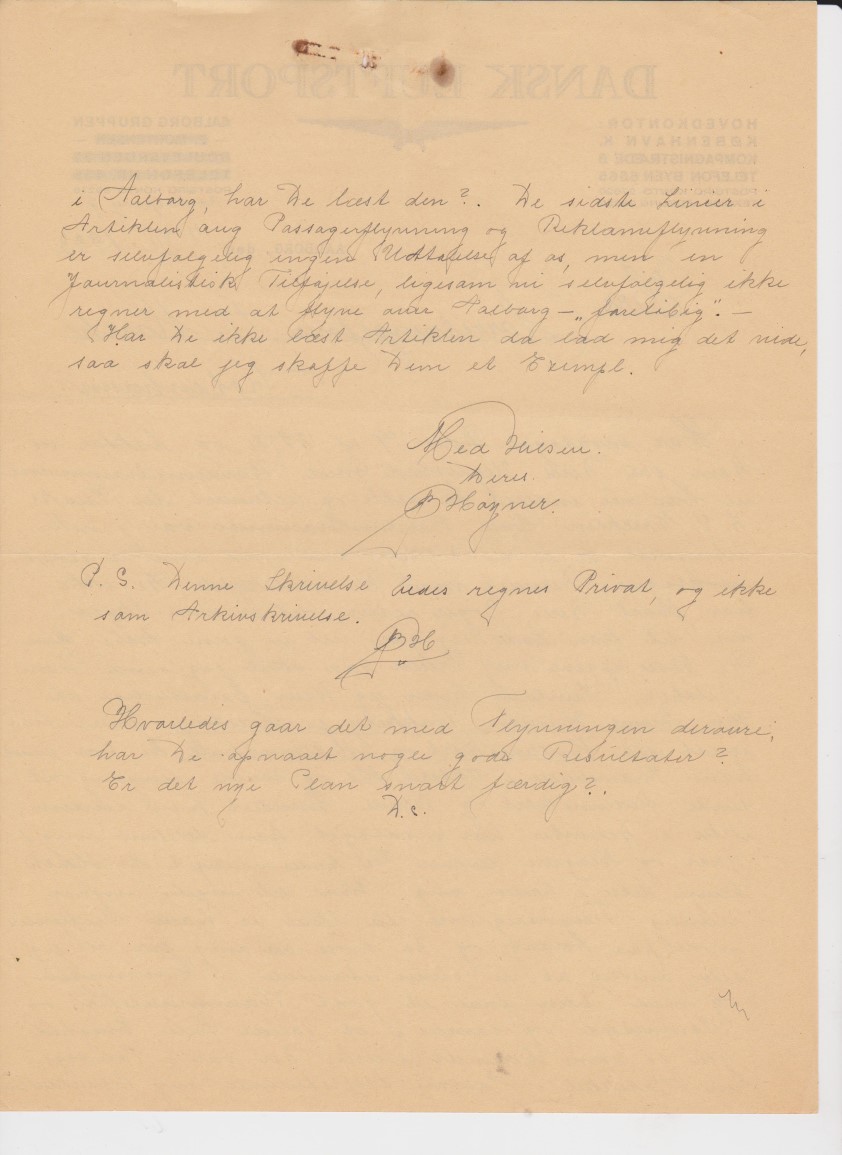 i Aalborg, har De læst den?. De sidste Linier i
Artiklen ang Passagerflyvning og Reklameflyvning
er selvfølgelig ingen Udtalelse af os, men en
Journalistisk Tilføjelse, ligesom vi selvfølgelig ikke
regner med at flyve over Aalborg – „foreløbig". –
Har De ikke læst Artiklen da lad mig det vide,
saa skal jeg skaffe Dem et Exempl.
Med Hilsen.
Deres.
P. S. Denne Skrivelse bedes regnes Privat, og ikke
som Arkivskrivelse.
BH
Hvorledes gaar det med Flyvningen derovre,
har De opnaaet nogle gode Resultater?
Er det nye Plan snart færdig?.
D.S.